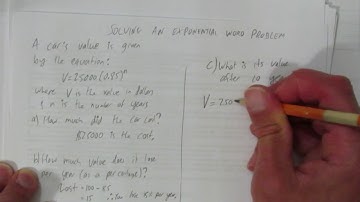 SOLVING AN EXPONENTIAL WORD PROBLEM
A car's value is given
by the equation:
V=25000(0.85)ⁿ
where V is the value in dollars
& n is the number of years
a) How much did the car cost?
$25000 is the cost.
b) How much value does it lose
per year (as a percentage)?
lost = 100 - 85
= 15 ∴ lose 15% per year.
c) What is its value
after 10
V = 250